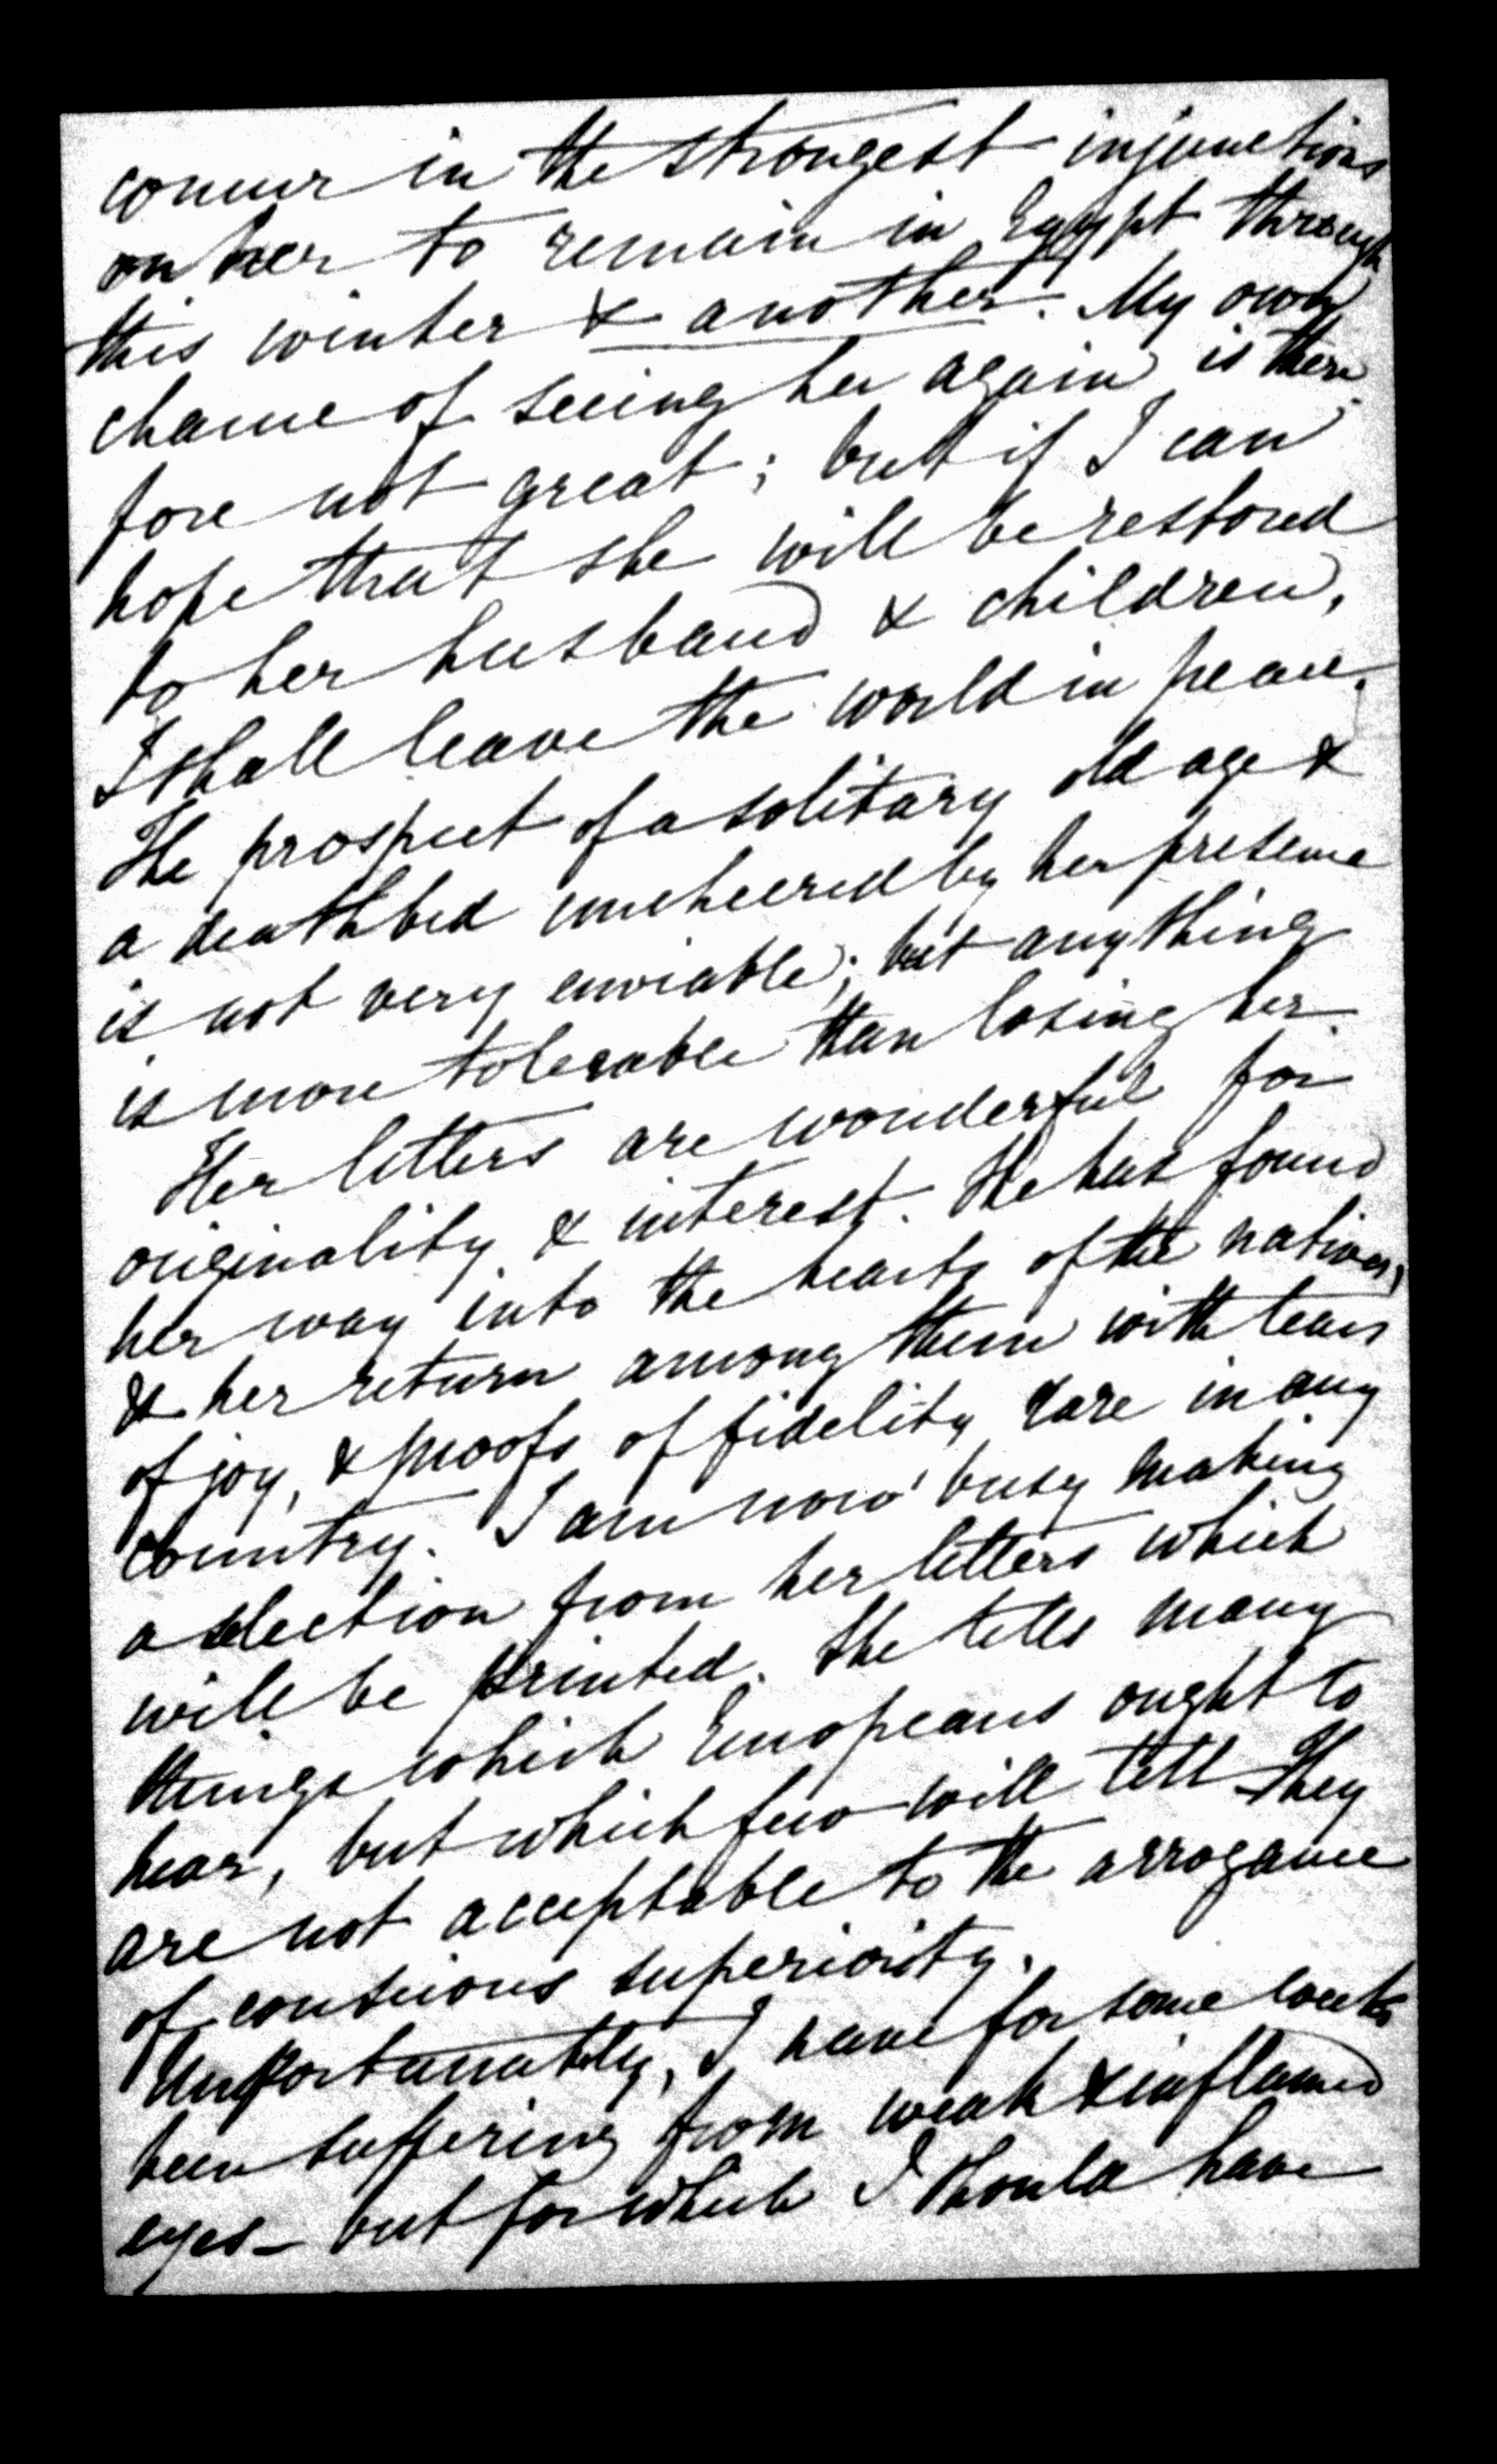 concur in the strongest injunctions
on her to remain in Egypt through
this winter & another. My own
chance of seeing her again is there
fore not great; but if I can
hope that she will be restored
to her husband & children,
I shall leave the world in peace.
The prospect of a solitary old age &
a deathbed uncheered by her presence
is not very enviable; but anything
is more tolerable than losing her.
Her letters are wonderful for
originality & interest. She has found
her way into the hearts of the natives,
& her return among them with tears
of joy, & proofs of fidelity rare in any
country. I am now busy making
a selection from her letters which
will be printed. She tells many
things which Europeans ought to
hear, but which few will tell - They
are not acceptable to the arrogance
of conscious superiority.
Unfortunately, I have for some weeks
been suffering from weak & inflamed
eyes - but for which I should have